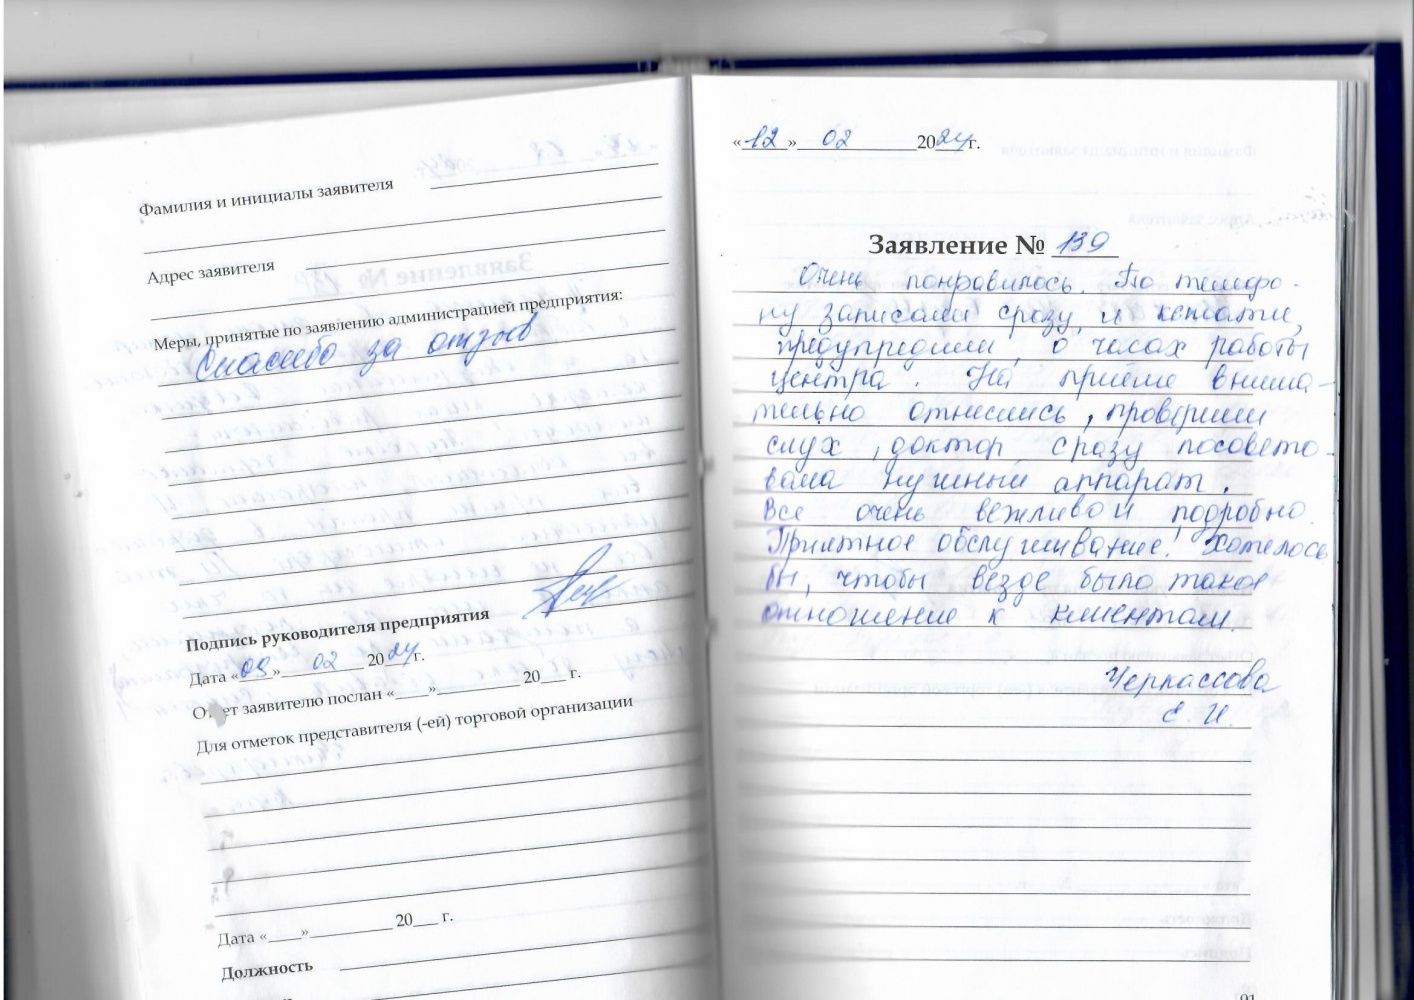 Фамилия и инициалы заявителя
Адрес заявителя
Меры, принятые по заявлению администрацией предприятия:
Спасибо за отзыв
Подпись руководителя предприятия
Дата «09» 02 2024 г.
Ответ заявителю послан «___»__________ 20___ г.
Для отметок представителя (-ей) торговой организации
Дата «____»__________ 20___ г.
Должность
«12» 02 2024 г.
Заявление № 139
Очень понравилось. По телефо-
ну записали сразу, и кстати,
предупредили, о часах работы
центра. На приёме внима-
тельно отнеслись, проверили
слух, доктор сразу посовето-
вала нужный аппарат.
Все очень вежливо и подробно.
Приятное обслуживание! Хотелось
бы, чтобы везде было такое
отношение к клиентам.
Черкассова
Е. И.
91